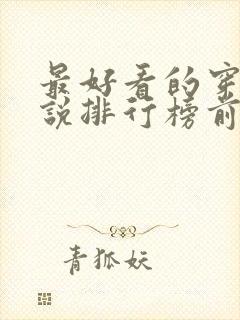 最好看的穿
說排行榜前
青狐妖